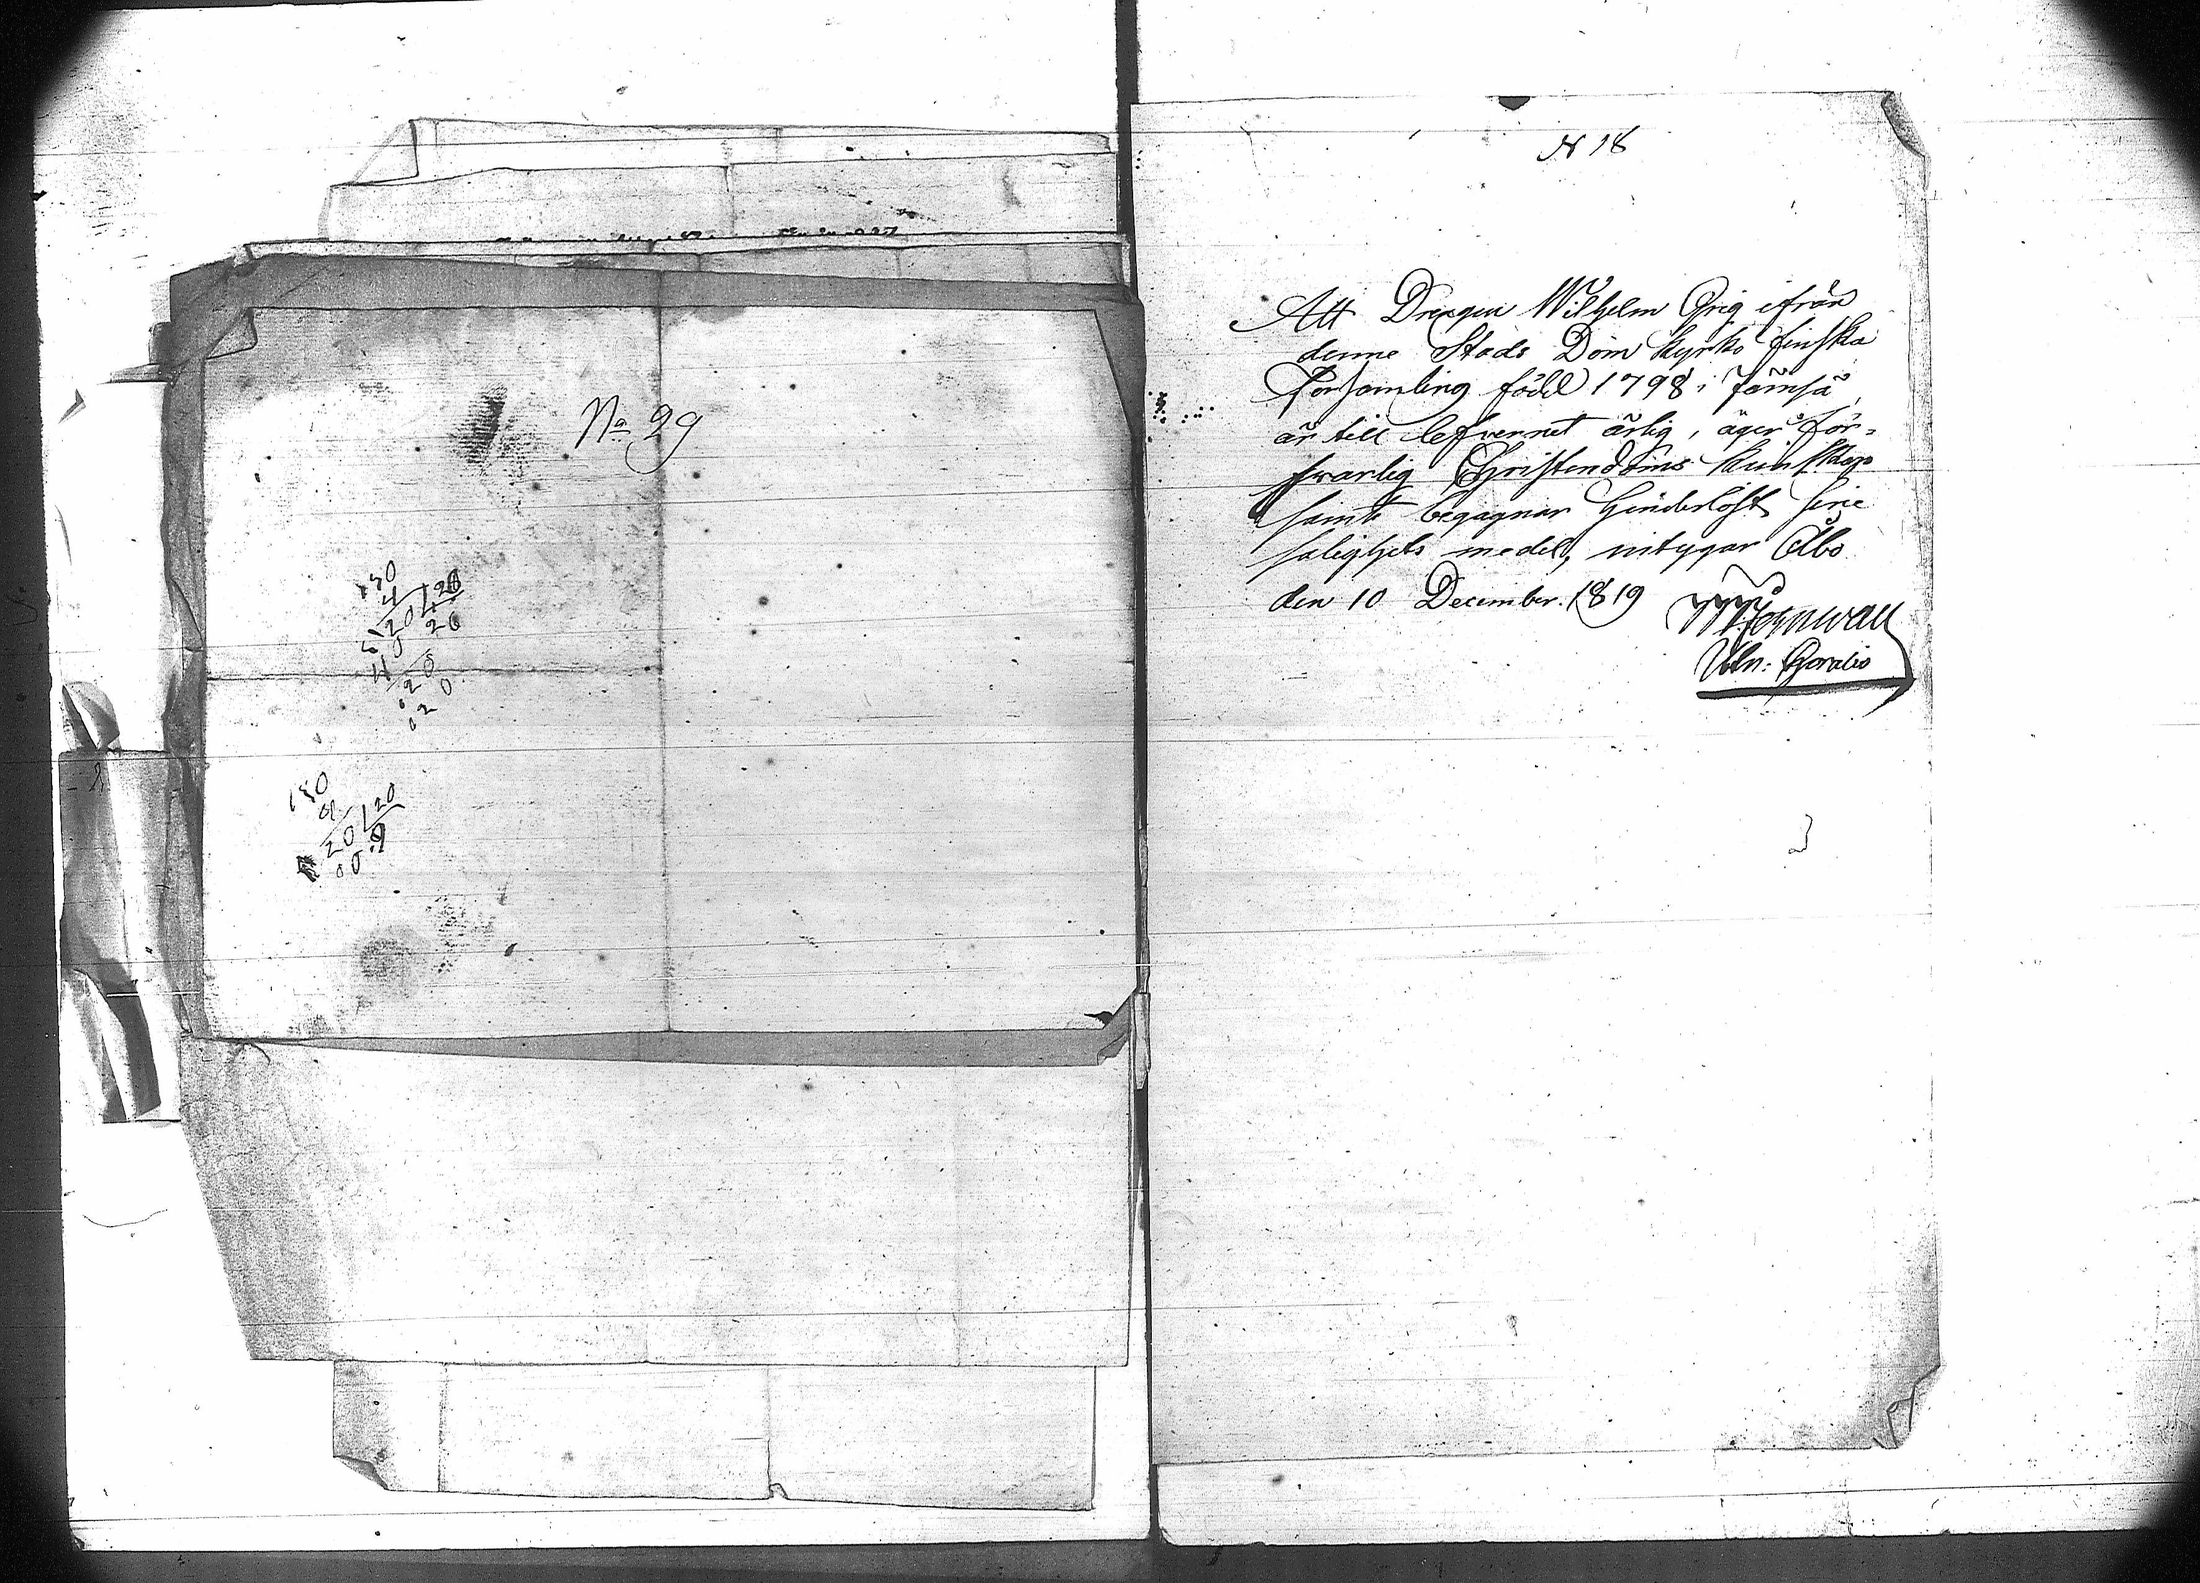 Na 29
130
4
20
120
26
20
0
02
130
4
20
120
9
00
N 18
Att Drengen Wilhelm Grig ifrån
denne Stads Dom kyrko finska
Församling född 1798 i Jämsä,
är till lefvernet ärlig, äger för=
svarlig Christendoms kunskap
samt begagnar hinderlöst sine
salighets medel, intygar Åbo
den 10 December. 1819